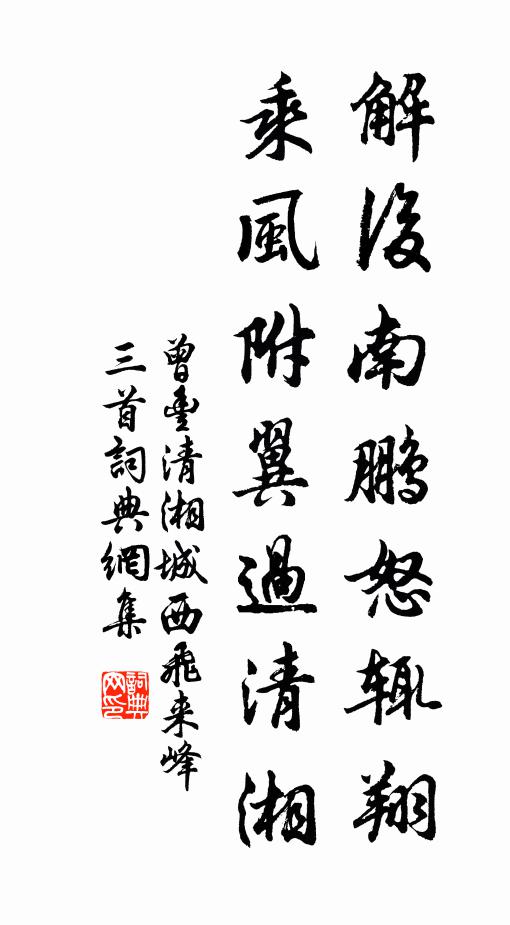 解後南鹏怒辄翔
乘風附翼過清湘
曾豐清湘城西飛来峰
三首詞典網集
詞典網印